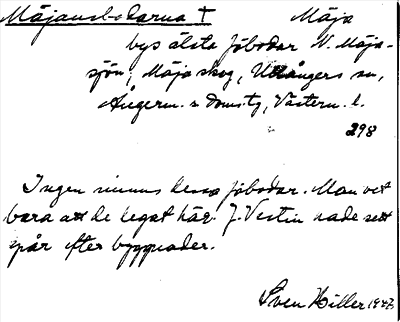 Mäjansbodarna † Mäja
bys älsta fäbodar N. Mäja-
sjön, Mäja skog, Utångers sn,
Ångerm. s domstg, Västern. l.
298
Ingen minns dessa fäbodar. Man vet
bara att de legat här. J. Vestin hade sett
spår efter byggnader.
Sven Hiller 1947